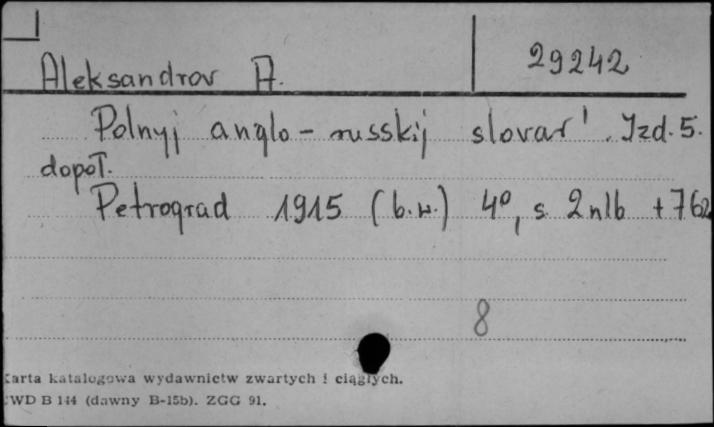 29242
Aleksandrov A.
Polnyj anglo-russkij slovar'. Izd. 5.
dopoł.
Petrograd 1915 (b.w.) 4°, s. 2nlb + 762
8
Karta katalogowa wydawnictw zwartych i ciągłych.
WD B 144 (dawny B-15b). ZGG 91.